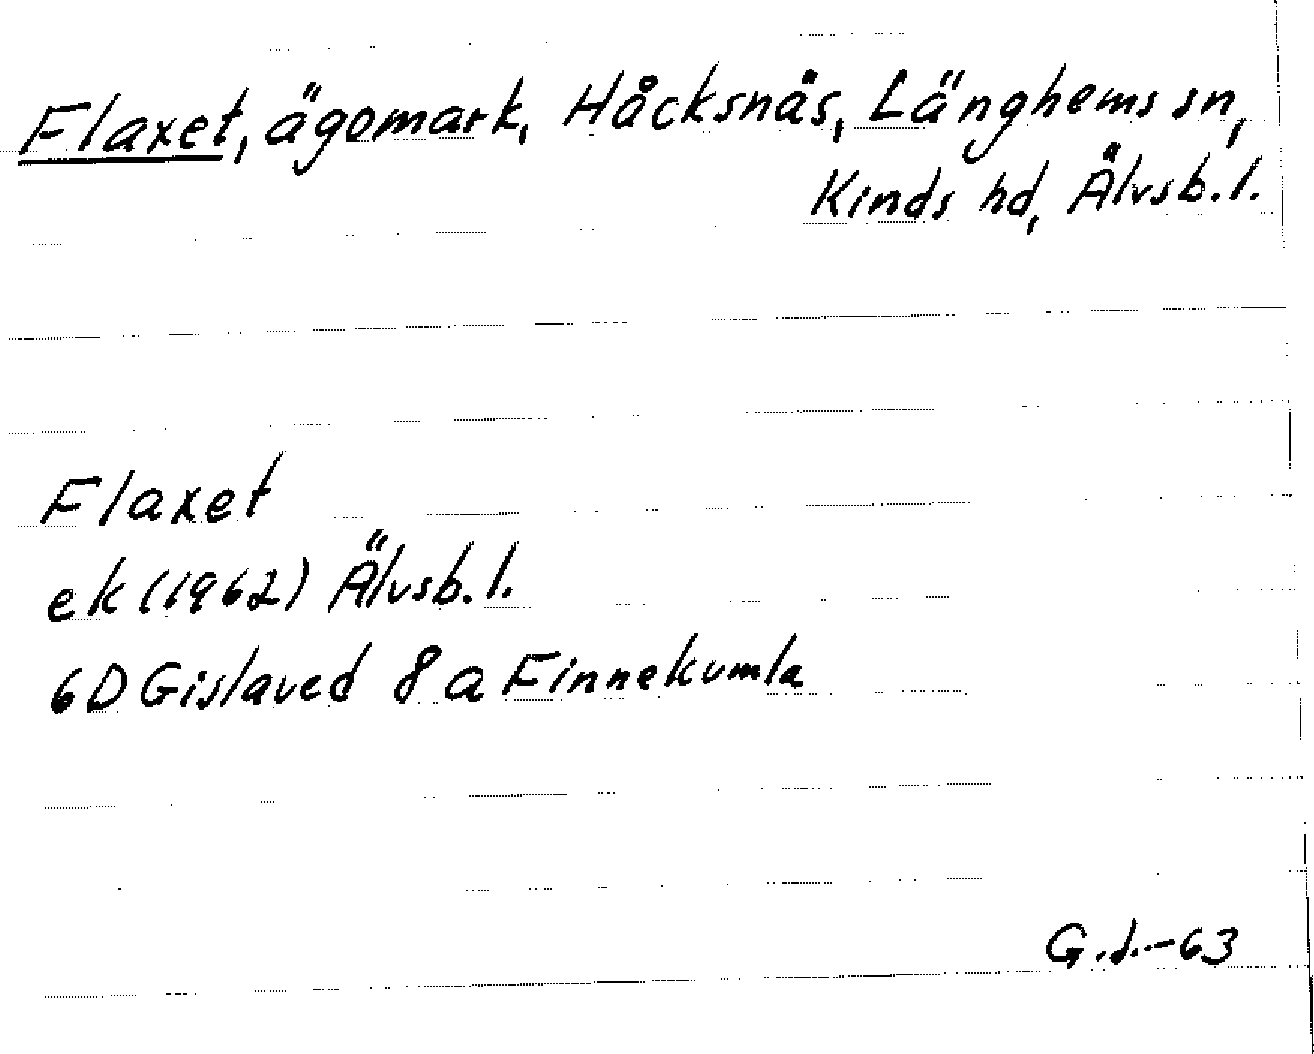 Flaxet, ägomark, Håcksnäs, Länghems sn,
Kinds hd, Älvsb. l.
Flaxet
ek (1962) Älvsb. l.
6D Gislaved 8 a Finnekumla
G.d.-63